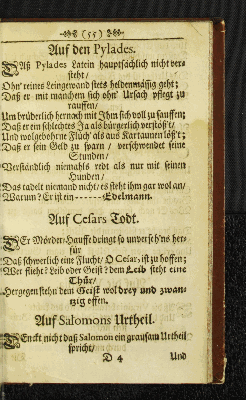 (55)
Auf den Pylades.
DAß Pylades Latein hauptsächlich nicht ver-
steht/
Ohn' reines Leingewand stets heldenmässig geht;
Daß er mit manchem sich ohn' Ursach pflegt zu
rauffen/
Um brüderlich hernoch mit Ihm sich voll zu sauffen;
Daß er ein schlechtes Ja als bürgerlich verstöß't/
Und wolgebohrne Flüch' als aus Kartaunen löß't;
Daß er sein Geld zu sparn / verschwendet seine
Stunden/
Verständlich niemahls redt als nur mit seinen
Hunden/
Das tadelt niemand nicht/ es steht ihm gar wol an/
Warum? Er ist ein ------Edelmann.
Auf Cesars Todt.
DEr Mörder-Hauffe dringt so unverseh'ns her-
für
Daß schwerlich eine Flucht/ O Cesar, ist zu hoffen;
Wer stieht? Leib oder Geist? dem Leib steht eine
Thür/
Hergegen stehn dem Geist wol drey und zwan-
tzig offen.
Auf Salomons Urtheil.
DEnckt nicht daß Salomon ein grausam Urtheil
spricht/
D 4
Und